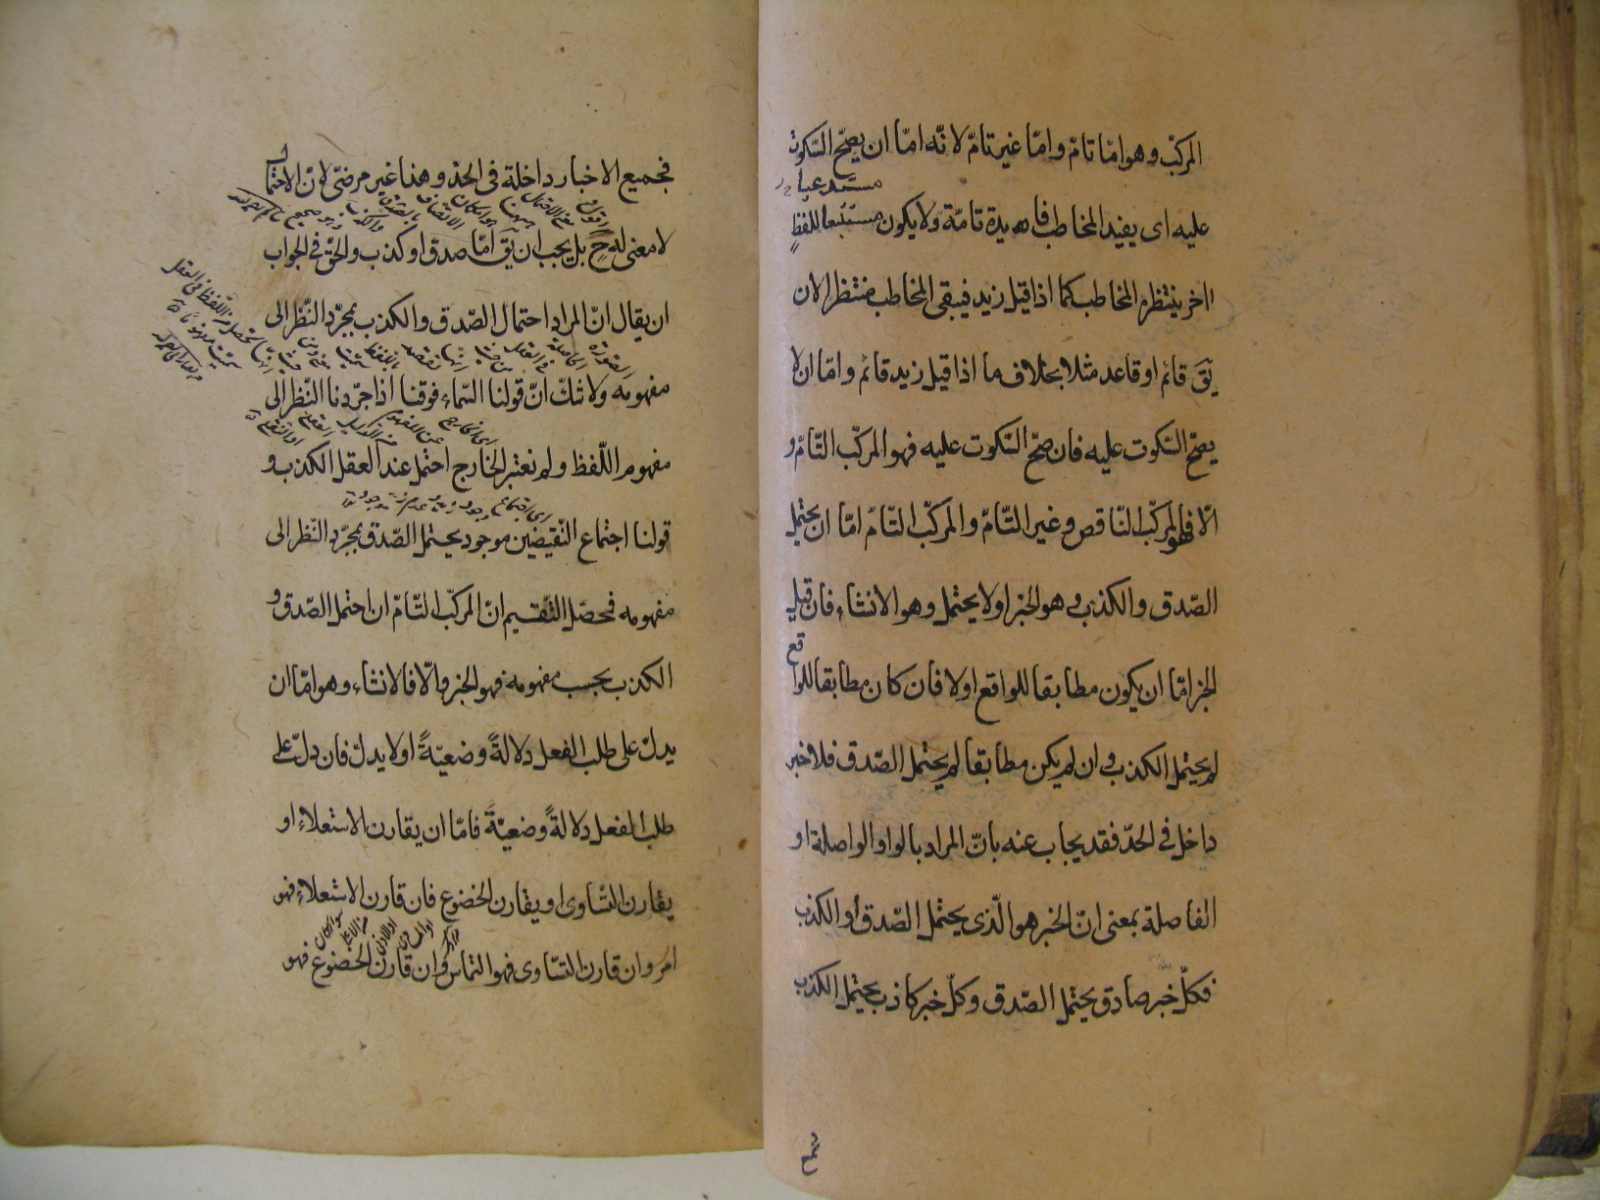 المركّب وهو امّا تامّ وامّا غير تامّ لانّه امّا ان يصحّ السّكوت
مستدعيا
عليه اى يفيد المخاطب فايدة تامّة ولا يكون مستتبعا للفظ
اخر ينتظره المخاطب كما اذا قيل زيد فيبقى المخاطب منتظرا لان
يقَ قائم او قاعد مثلا بخلاف ما اذا قيل زيد قائم وامّا ان لا
يصحّ السّكوت عليه فان صحّ السّكوت عليه فهو المركّب التّامّ و
الّا فهو المركّب النّاقص وغير التّامّ والمركّب التّامّ امّا ان يحتمل
الصّدق والكذب وهو الخبر او لا يحتمل وهو الانشاء فان قيل
الخبر امّا ان يكون مطابقا للواقع او لا فان كان مطابقا للواقع
لم يحتمل الكذب وان لم يكن مطابقا لم يحتمل الصّدق فلا خبر
داخل فى الحدّ فقد يجاب عنه بانّ المراد بالواو الواصلة او
الفاصلة بمعنى انّ الخبر هو الّذى يحتمل الصّدق او الكذب
فكلّ خبر صادق يحتمل الصّدق وكلّ خبر كاذب يحتمل الكذب
فجميع الاخبار داخلة فى الحدّ وهذا غير مرضىّ لانّ الاحتمال
لا معنى له حٍ بل يجب ان يقَ امّا صدق او كذب والحقّ فى الجواب
ان يقال انّ المراد احتمال الصّدق والكذب بمجرّد النّظر الى
مفهومه ولا شكّ انّ قولنا السّماء فوقنا اذا جرّدنا النّظر الى
مفهوم اللّفظ ولم نعتبر الخارج احتمل عند العقل الكذب و
قولنا اجتماع النّقيضين موجود يحتمل الصّدق بمجرّد النّظر الى
مفهومه فمحصّل التّقسيم انّ المركّب التّامّ ان احتمل الصّدق و
الكذب بحسب مفهومه فهو الخبر والّا فالانشاء وهو امّا ان
يدلّ على طلب الفعل دلالةً وضعيّةً او لا يدلّ فان دلّ على
طلب الفعل دلالةً وضعيّةً فامّا ان يقارن الاستعلاء او
يقارن التّساوى او يقارن الخضوع فان قارن الاستعلاء فهو
امر وان قارن التّساوى فهو التماس وان قارن الخضوع فهو